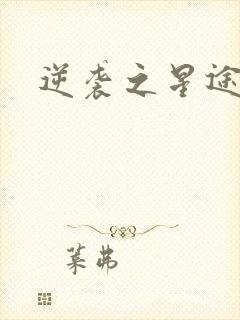 逆袭之星途
莱弗